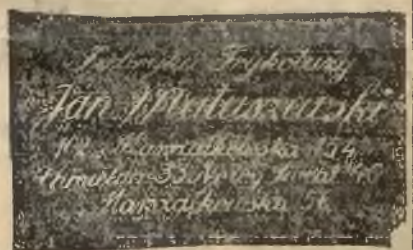 Fabryka Trykotaży
Jan Matuszewski
Marszałkowska 124
Chmielna 33 Nowy Świat 40
Marszałkowska 51